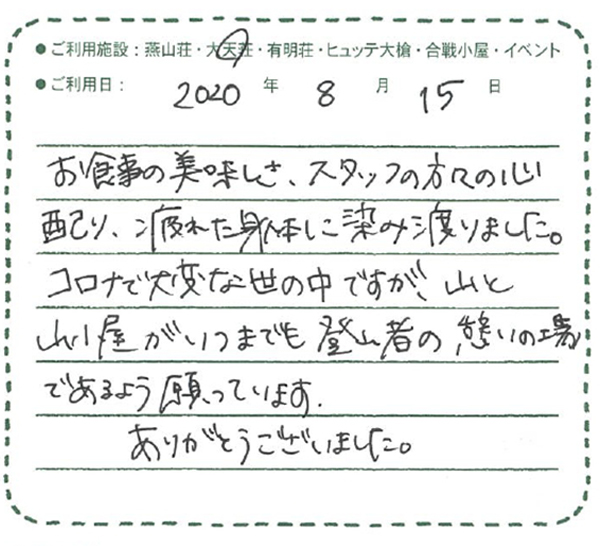 ●ご利用施設：燕山荘・大天荘・有明荘・ヒュッテ大槍・合戦小屋・イベント
●ご利用日： 2020 年 8 月 15 日
お食事の美味しさ、スタッフの方々の心
配り、疲れた身体に染み渡りました。
コロナで大変な世の中ですが、山と
山小屋がいつまでも登山者の憩いの場
であるよう願っています.
ありがとうございました。